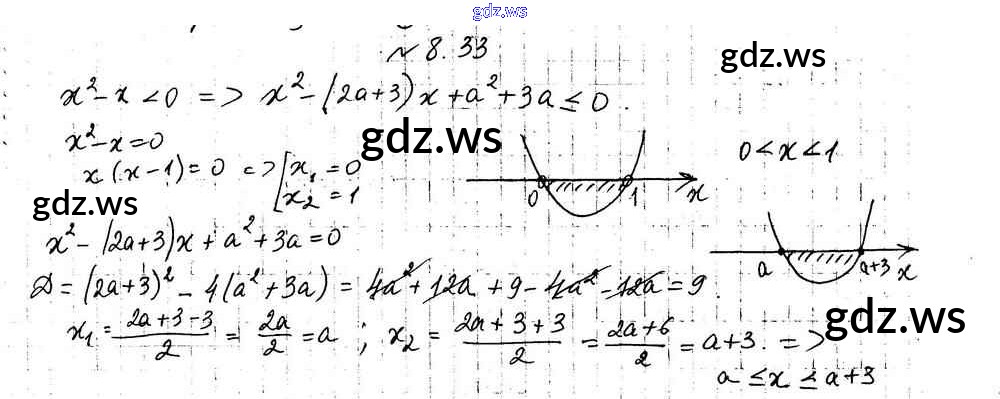 gdz.ws
№ 8.33
gdz.ws
x² - x < 0 => x² - (2a+3)x + a² + 3a ≤ 0.
gdz.ws
x² - x = 0
x(x-1) = 0 => [x₁ = 0
x₂ = 1
0 1 x
0 < x < 1
gdz.ws
x² - (2a+3)x + a² + 3a = 0
a a+3 x
D = (2a+3)² - 4(a² + 3a) = 4a² + 12a + 9 - 4a² - 12a = 9
x₁ = (2a+3-3)/2 = 2a/2 = a ; x₂ = (2a+3+3)/2 = (2a+6)/2 = a+3. =>
gdz.ws
a ≤ x ≤ a+3